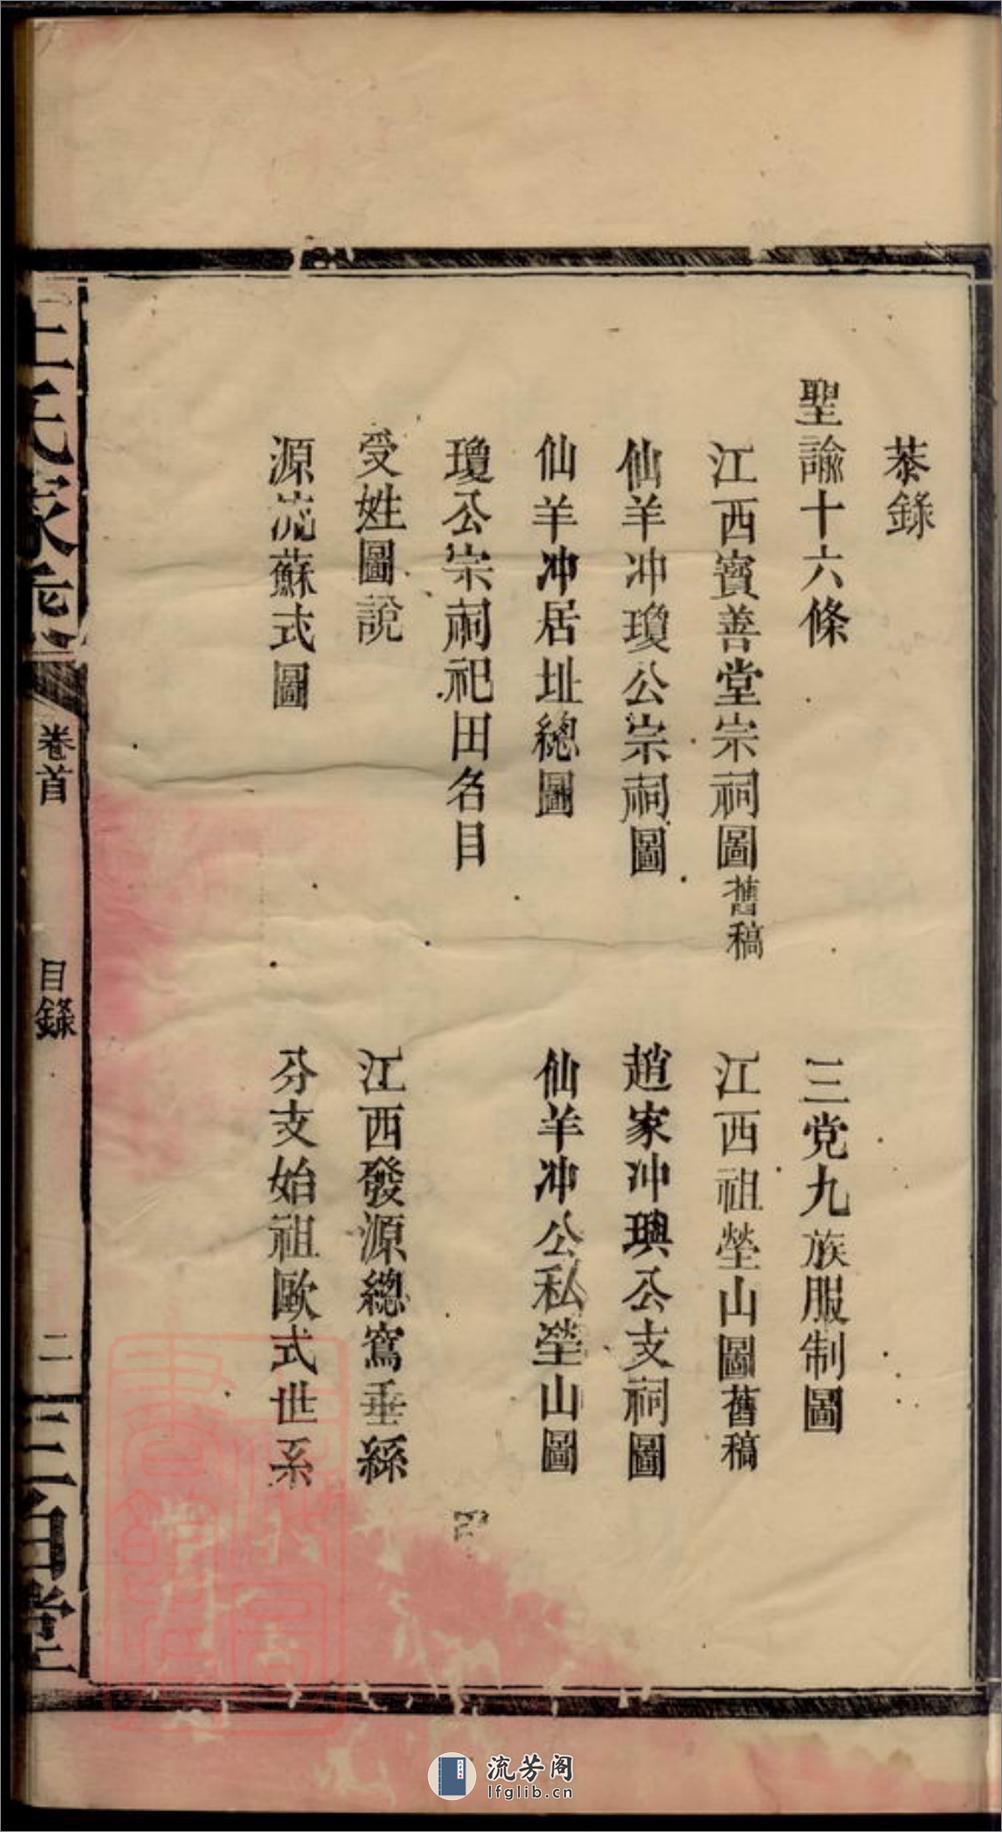 恭錄
聖諭十六條
三党九族服制圖
江西寳善堂宗祠圖舊稿
江西祖塋山圖舊稿
仙羊冲瓊公宗祠圖
趙家冲璵公支祠圖
仙羊冲居址總圖
仙羊冲公私塋山圖
瓊公宗祠祀田名目
受姓圖說
江西發源總寫垂絲
源流蘇式圖
分支始祖歐式世系
卷首
目錄
二
流芳阁
lfglib.cn